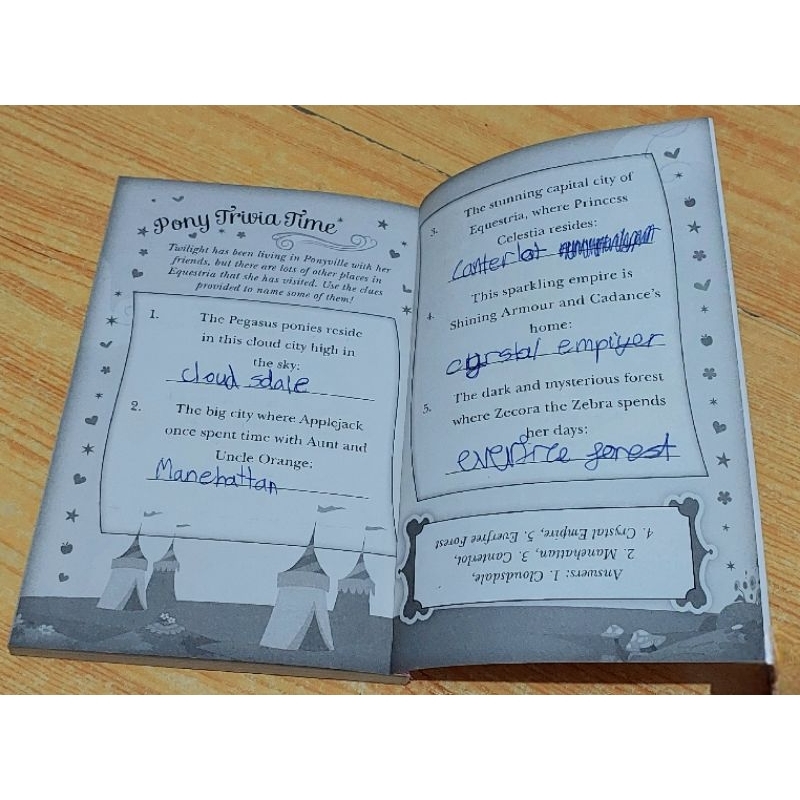 Pony Trivia Time
Twilight has been living in Ponyville with her
friends, but there are lots of other places in
Equestria that she has visited. Use the clues
provided to name some of them!
1. The Pegasus ponies reside
in this cloud city high in
the sky:
cloud sdale
2. The big city where Applejack
once spent time with Aunt and
Uncle Orange:
Manehattan
3. The stunning capital city of
Equestria, where Princess
Celestia resides:
canterlot
4. This sparkling empire is
Shining Armour and Cadance's
home:
empiyer
5. The dark and mysterious forest
where Zecora the Zebra spends
her days:
everfree forest
Answers: 1. Cloudsdale,
2. Manehattan, 3. Canterlot,
4. Crystal Empire, 5. Everfree Forest